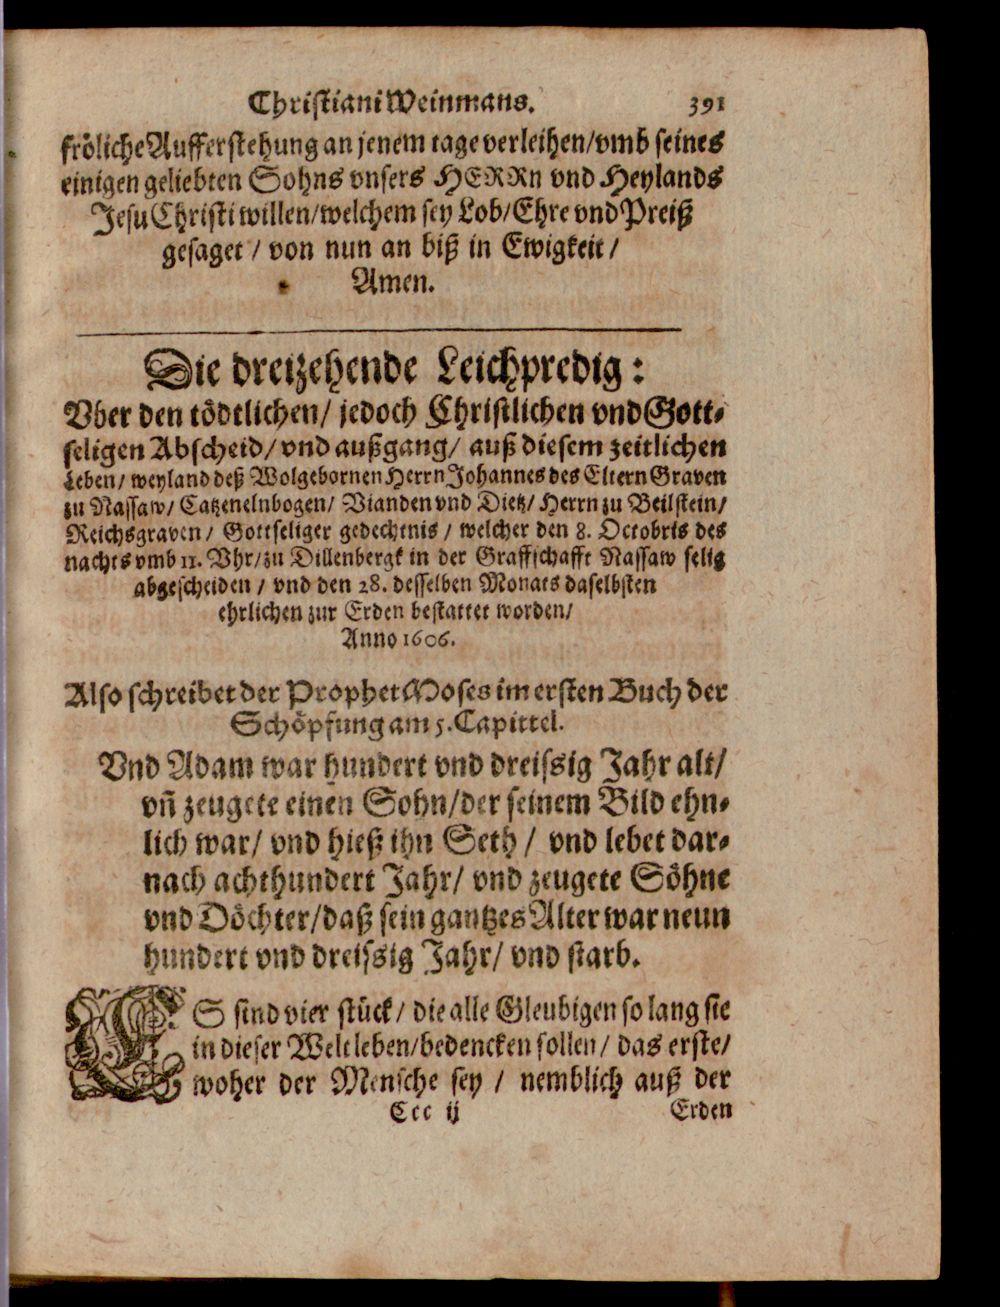 Christiani Weinmans. 391
fröliche Aufferstehung an jenem tage verleihen/vmb seines
einigen geliebten Sohns vnsers HERRn vnd Heylands
Jesu Christi willen/welchem sey Lob/Ehre vnd Preiß
gesaget / von nun an biß in Ewigkeit /
Amen.
Die dreizehende Leichpredig:
Vber den tödtlichen/ jedoch Christlichen vnd Gott-
seligen Abscheid/ vnd außgang/ auß diesem zeitlichen
Leben/ weyland deß Wolgebornen Herrn Johannes des Eltern Graven
zu Nassaw/ Catzenelnbogen/ Vianden vnd Dietz/ Herrn zu Beilstein/
Reichsgraven/ Gottseliger gedechtnis / welcher den 8. Octobris des
nachts vmb 11. Vhr/zu Dillenbergk in der Graffschafft Nassaw selig
abgescheiden / vnd den 28. desselben Monats daselbsten
ehrlichen zur Erden bestattet worden/
Anno 1606.
Also schreibet der Prophet Moses im ersten Buch der
Schöpfung am 5. Capittel.
Vnd Adam war hundert vnd dreissig Jahr alt/
vñ zeugete einen Sohn/der seinem Bild ehn-
lich war/ vnd hieß ihn Seth / vnd lebet dar-
nach achthundert Jahr/ vnd zeugete Söhne
vnd Döchter/daß sein gantzes Alter war neun
hundert vnd dreissig Jahr/ vnd starb.
ES sind vier stück/ die alle Gleubigen so lang sie
in dieser Welt leben/bedencken sollen/ das erste/
woher der Mensche sey / nemblich auß der
Ccc ij Erden